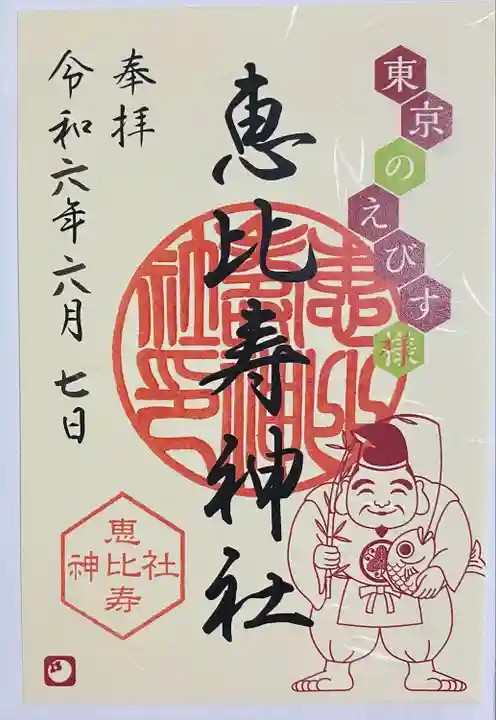 東京のえびす様
恵比寿神社
奉拝
令和六年六月七日
恵比寿神社
恵比寿
神社